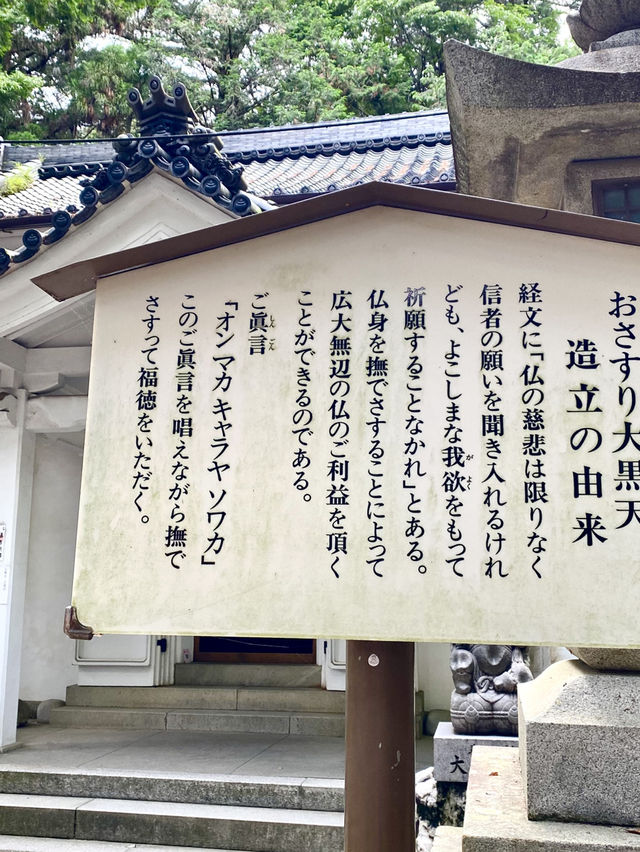 おさすり大黒天
造立の由来
経文に「仏の慈悲は限りなく
信者の願いを聞き入れるけれ
ども、よこしまな我欲をもって
祈願することなかれ」とある。
仏身を撫でさすることによって
広大無辺の仏のご利益を頂く
ことができるのである。
ご眞言
「オン マカ キャラヤ ソワカ」
このご眞言を唱えながら撫で
さすって福徳をいただく。
大